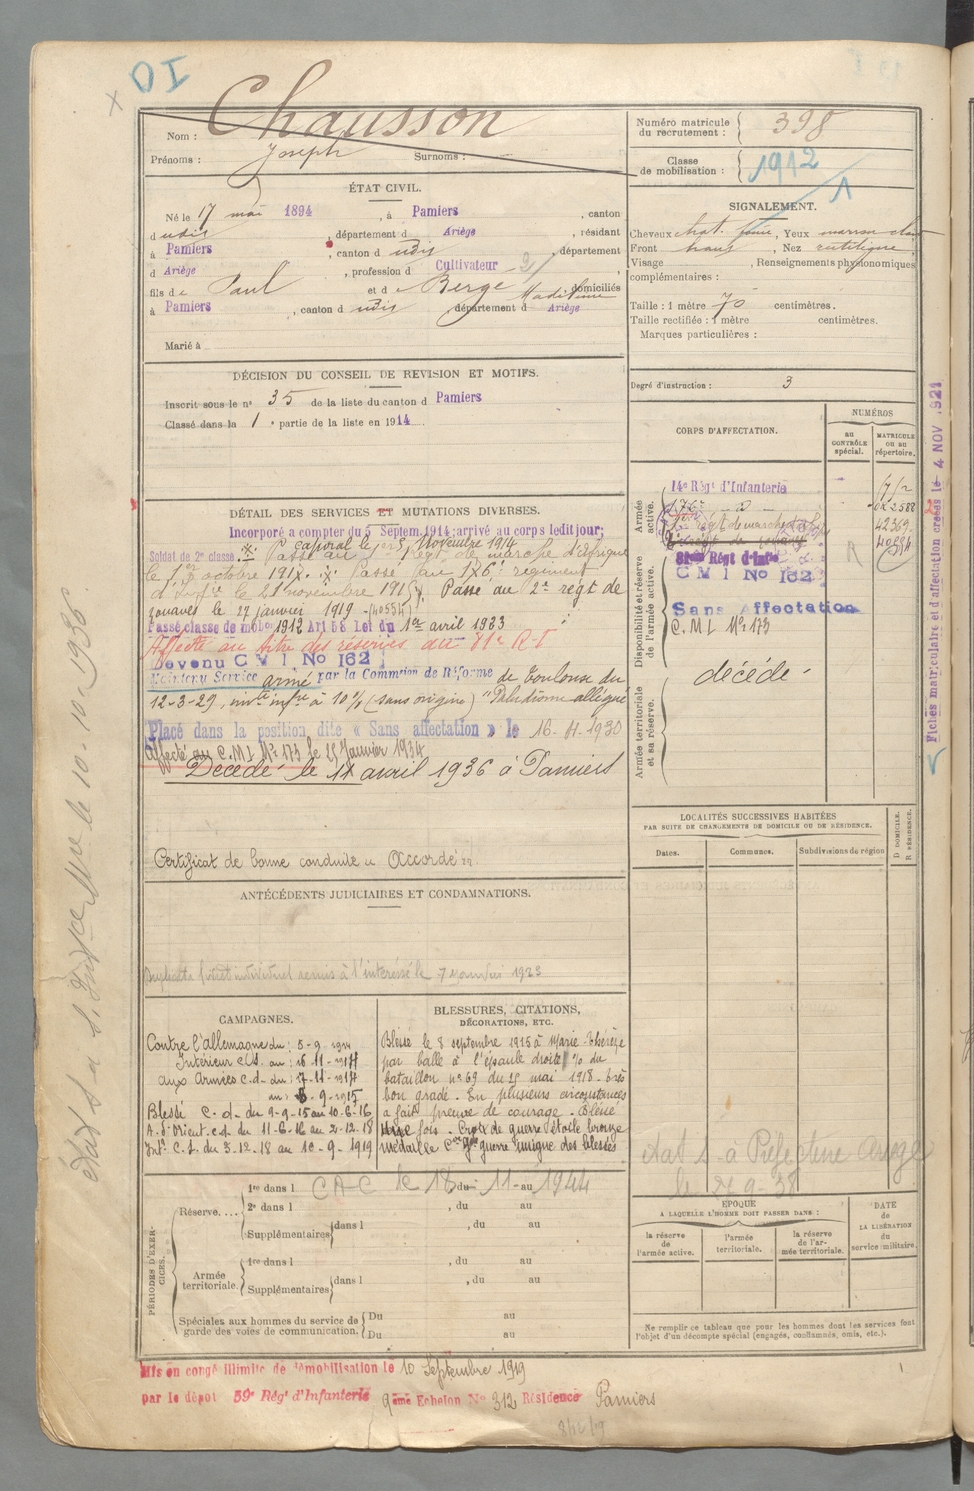 OI
Nom : Chausson
Prénoms : Joseph Surnoms :
Numéro matricule du recrutement : 398
Classe de mobilisation : 1912
ÉTAT CIVIL.
Né le 17 mai 1894, à Pamiers, canton
dudis, département d Ariège, résidant
à Pamiers, canton d udis, département
d Ariège, profession d Cultivateur
fils de Paul et de Berge domiciliés
à Pamiers, canton d udis département d Ariège
Marié à
SIGNALEMENT.
Cheveux chat. foncé, Yeux marron clair
Front haut, Nez rectiligne
Visage , Renseignements physionomiques
complémentaires :
Taille : 1 mètre 70 centimètres.
Taille rectifiée : 1 mètre centimètres.
Marques particulières :
Degré d'instruction : 3
DÉCISION DU CONSEIL DE REVISION ET MOTIFS.
Inscrit sous le n° 35 de la liste du canton d Pamiers
Classé dans la 1e partie de la liste en 1914
CORPS D'AFFECTATION.
NUMÉROS
au CONTRÔLE spécial.
MATRICULE ou au répertoire.
Armée active.
14e Régt d'Infanterie
176e
42369
Disponibilité et réserve de l'armée active.
81e Régt d'Infie
C M I No 162
Sans Affectation
C. M I No 173
Armée territoriale et sa réserve.
décédé
Fiches matriculaire et d'affectation créées le 4 NOV. 1921
DÉTAIL DES SERVICES ET MUTATIONS DIVERSES.
Incorporé a compter du 5 Septem. 1914 arrivé au corps ledit jour;
Soldat de 2e classe. Caporal le 5 Novembre 1914
Passé au Régt de marche d'Afrique
le 1er octobre 1915. Passé au 176e régiment
d'Infie le 21 novembre 1915. Passé au 2e régt de
zouaves le 27 janvier 1919 (40554)
Passé classe de mobon 1912 Art 58 Loi du 1er avril 1923
Affecté au titre des réserves au 81e R I
Devenu C M I. No 162
Maintenu Service armé par la Commsion de Réforme de Toulouse du
12-3-29, invté infre à 10% (sans origine) "Paludisme allégué
Placé dans la position dite « Sans affectation » le 16-11-1930
Affecté au C. M I No 173 le 25 Janvier 1934
Décédé le 11 avril 1936 à Pamiers
Certificat de bonne conduite a Accordé
ANTÉCÉDENTS JUDICIAIRES ET CONDAMNATIONS.
Duplicata livret individuel remis à l'intéressé le 7 janvier 1923
LOCALITÉS SUCCESSIVES HABITÉES
PAR SUITE DE CHANGEMENTS DE DOMICILE OU DE RÉSIDENCE.
Dates. Communes. Subdivisions de région
D DOMICILE. R RÉSIDENCE.
CAMPAGNES.
Contre l'allemagne du : 5-9-1914
Intérieur c.s. au : 16-11-1914
aux Armées c.d. du : 17-11-1914
au : 8-9-1915
Blessé c.d. du 9-9-15 au 10-6-16
A. d'Orient. c.d. du 11-6-16 au 2-12-18
Intr C.S. du 3-12-18 au 10-9-1919
BLESSURES, CITATIONS, DÉCORATIONS, ETC.
Blessé le 8 septembre 1915 à Marie-Thérèse
par balle à l'épaule droite % du
bataillon no 69 du 25 mai 1918 - très
bon gradé - En plusieurs circonstances
a fait preuve de courage - Blessé
une fois - Croix de guerre étoile bronze
médaille Cve Gde guerre insigne des blessés
état s. à Préfecture Ariège
PÉRIODES D'EXERCICES.
Réserve....
1re dans l CAC le 18 du 11 au 1944
2e dans l , du au
Supplémentaires dans l , du au
Armée territoriale.
1re dans l , du au
Supplémentaires dans l , du au
Spéciales aux hommes du service de garde des voies de communication.
Du au
Du au
ÉPOQUE
A LAQUELLE L'HOMME DOIT PASSER DANS :
la réserve de l'armée active.
l'armée territoriale.
la réserve de l'armée territoriale.
DATE de LA LIBÉRATION du service militaire.
Ne remplir ce tableau que pour les hommes dont les services font
l'objet d'un décompte spécial (engagés, condamnés, omis, etc.).
Mis en congé illimité de démobilisation le 10 Septembre 1919
par le dépot 59e Régt d'Infanterie 9ème Echelon No 312 Résidence Pamiers